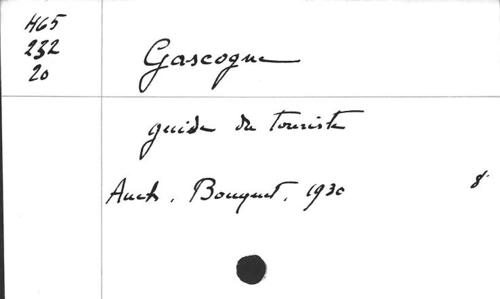 H65
232
20
Gascogne
guide du touriste
Auch, Bouquet, 1930 8°